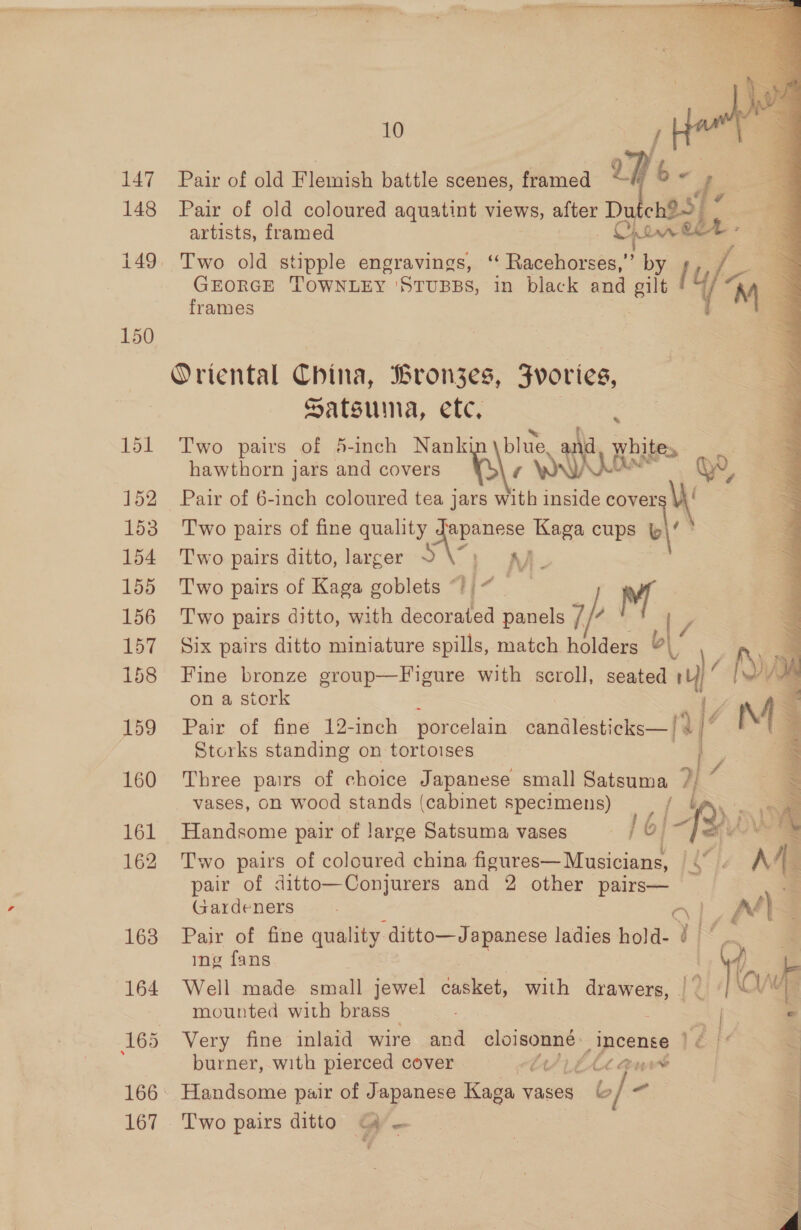 10
147 Pair of old Flemish battle scenes, framed
148 Pair of old coloured aquatint views, after Dutch
artists, framed
149 Two old stipple engravings, “Racehorses,” by
GEORGE TOWNLEY STUBBS, in black and gilt
frames
150
Oriental China, Bronzes, Ivories,
Satsuma, etc.
151 Two pairs of 5-inch Nankin blue and white
hawthorn jars and covers
152 Pair of 6-inch coloured tea jars with inside covers
153 Two pairs of fine quality Japanese Kaga cups
154 Two pairs ditto, larger
155 Two pairs of Kaga goblets
156 Two pairs ditto, with decorated panels 7/- M
157 Six pairs ditto miniature spills, match holders
158 Fine bronze group—Figure with scroll, seated
on a stork
159 Pair of fine 12-inch porcelain candlesticks— M
Storks standing on tortoises
160 Three pairs of choice Japanese small Satsuma
vases, on wood stands (cabinet specimens)
161 Handsome pair of large Satsuma vases 16/-
162 Two pairs of coloured china figures—Musicians, M
pair of ditto—Conjurers and 2 other pairs—
Gardeners
163 Pair of fine quality ditto—Japanese ladies hold-
ing fans
164 Well made small jewel casket, with drawers,
mounted with brass
165 Very fine inlaid wire and cloisonné incense
burner, with pierced cover
166 Handsome pair of Japanese Kaga vases 6/-
167 Two pairs ditto